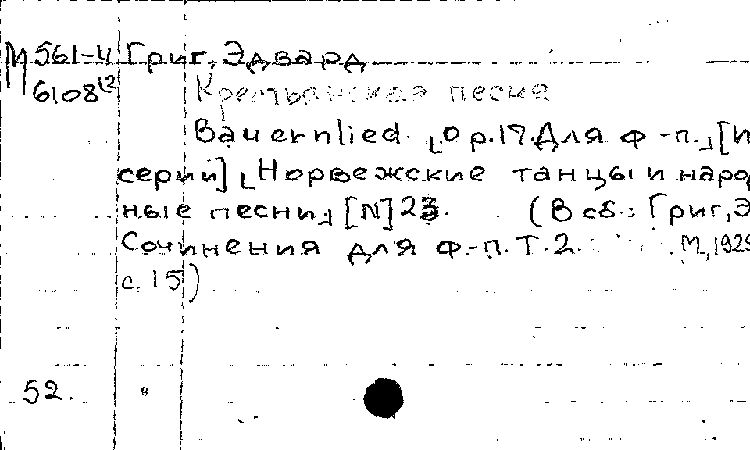 М 561-4 Григ, Эдвард
6108¹² Крестьянская песня
Bauernlied. [Op.17. Для ф-п.] [И
серии] [Норвежские танцы и народ
ные песни] [N] 23. (В сб.: Григ, Э
Сочинения для ф.-п. Т.2. М., 1929
с. 15)
52. "